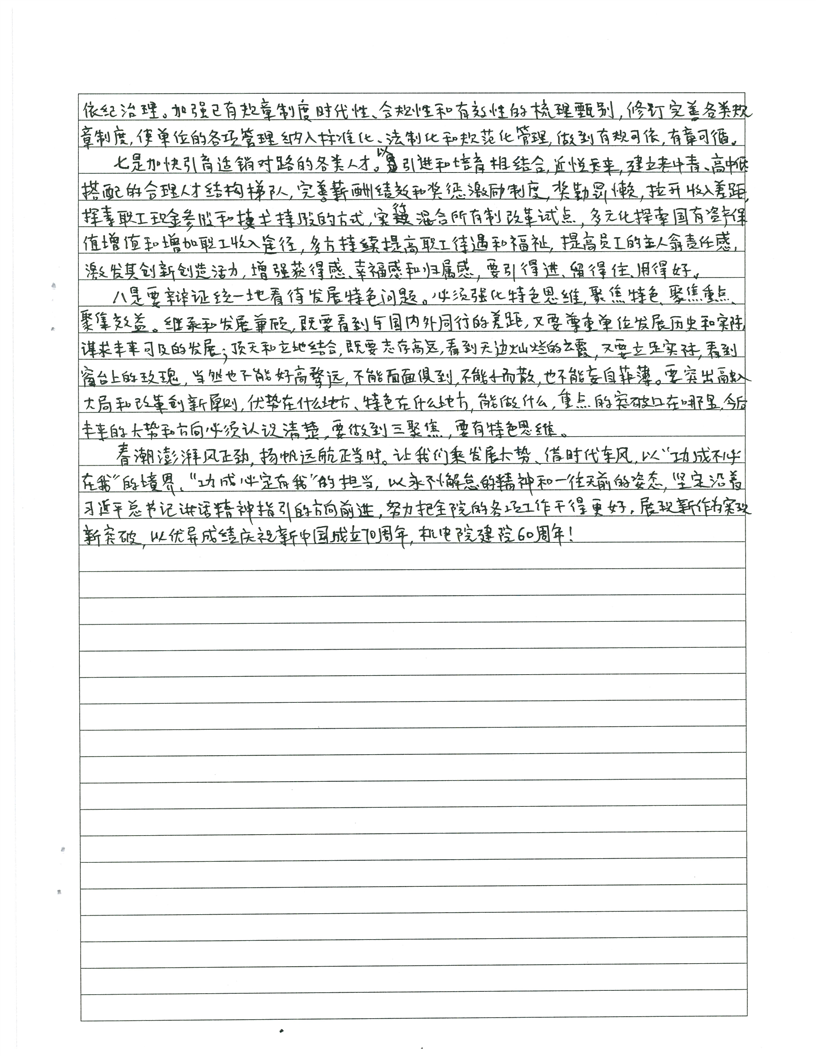 依纪治理。加强已有规章制度时代性、合规性和有效性的梳理甄别，修订完善各类规
章制度，使单位的各项管理纳入标准化、法制化和规范化管理，做到有规可依，有章可循。
七是加快引育适销对路的各类人才。以引进和培育相结合，近悦远来，建立老中青、高中低
搭配的合理人才结构梯队，完善薪酬绩效和奖惩激励制度，奖勤罚懒，拉开收入差距，
探索职工现金参股和技术持股的方式，实践混合所有制改革试点，多元化探索国有资产保
值增值和增加职工收入途径，多方持续提高职工待遇和福祉，提高员工的主人翁责任感，
激发其创新创造活力，增强获得感、幸福感和归属感，要引得进、留得住、用得好。
八是要辩证统一地看待发展特色问题。必须强化特色思维，聚焦特色、聚焦重点、
聚集效益。继承和发展兼顾，既要看到与国内外同行的差距，又要尊重单位发展历史和实际，
谋求未来可及的发展；顶天和立地结合，既要志存高远，看到天边灿烂的云霞，又要立足实际，看到
窗台上的玫瑰，当然也不能好高骛远，不能面面俱到，不能小而散，也不能妄自菲薄。要突出融入
大局和改革创新原则，优势在什么地方、特色在什么地方，能做什么，重点的突破口在哪里，今后
未来的大势和方向必须认识清楚，要做到三聚焦，要有特色思维。
春潮澎湃风正劲，扬帆远航正当时。让我们乘发展大势、借时代东风，以“功成不必
在我”的境界、“功成必定在我”的担当，以永不懈怠的精神和一往无前的姿态，坚定沿着
习近平总书记讲话精神指引的方向前进，努力把全院的各项工作干得更好，展现新作为实现
新突破，以优异成绩庆祝新中国成立70周年，机电院建院60周年！